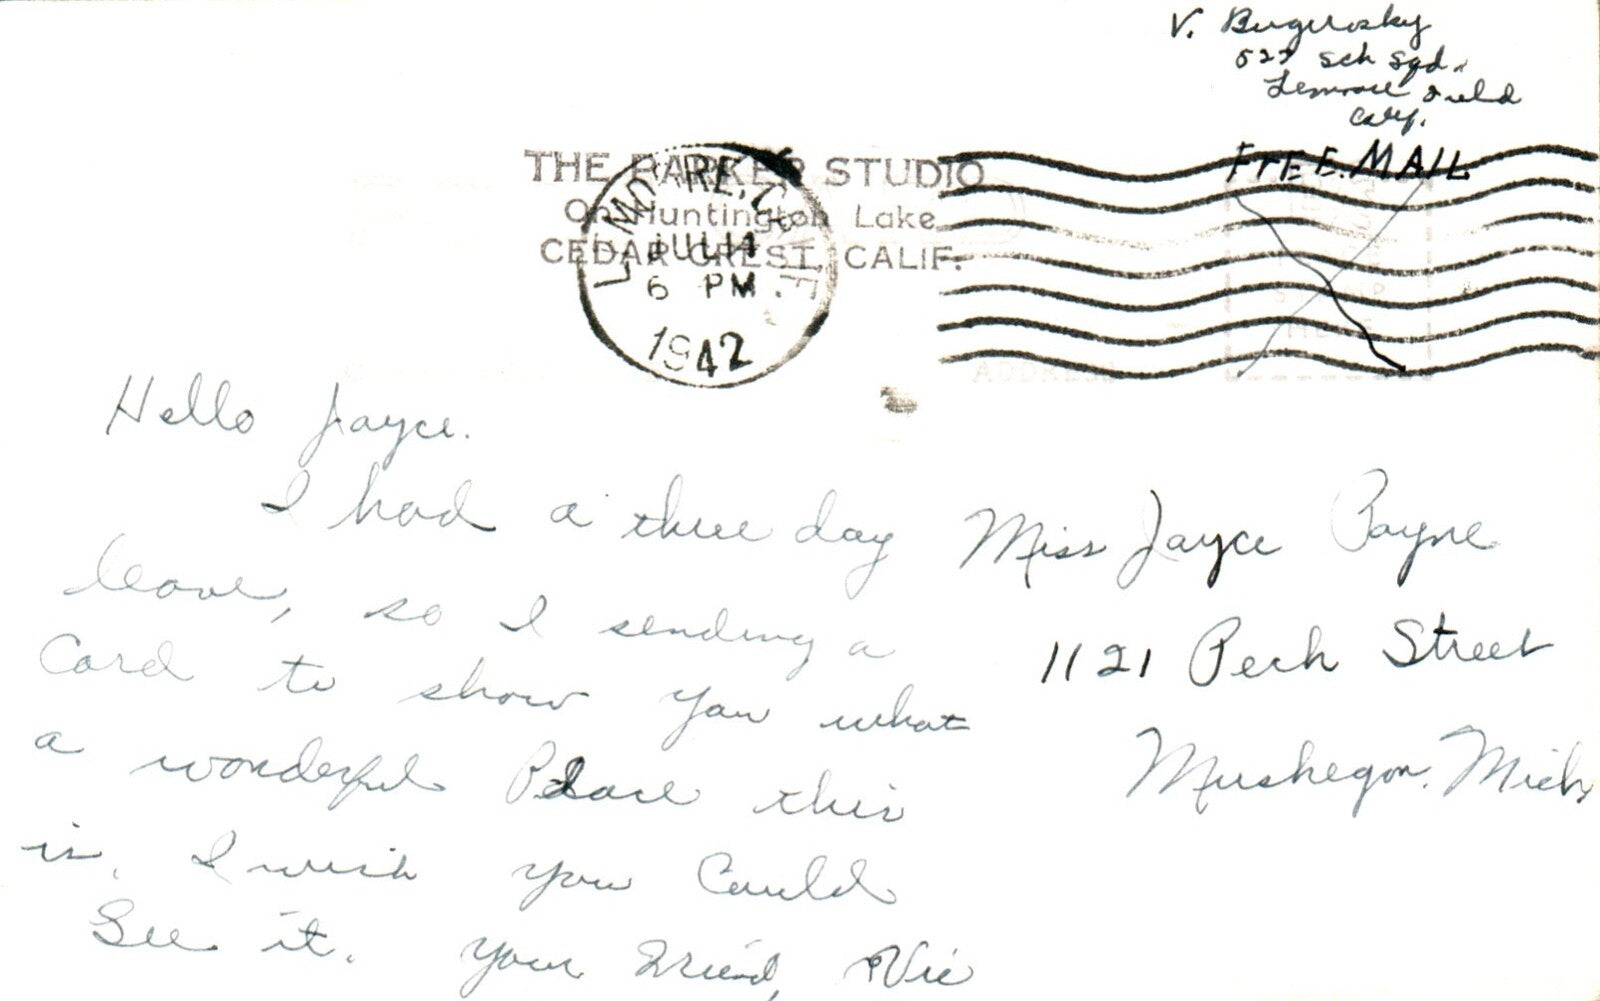 V.
Sch Sqd.
Lemoore Field
Calif.
FREE. MAIL
THE PARKER STUDIO
On Huntington Lake
CEDAR CREST, CALIF.
LEMOORE, CALIF.
JUL 14
6 PM
1942
ADDRESS
Hello Jayce.
I had a three day
leave, so I sending a
Card to show you what
a wonderful Place this
is. I wish you Could
See it. Your Friend, Vic
Miss Jayce Payne
1121 Peck Street
Muskegon, Mich